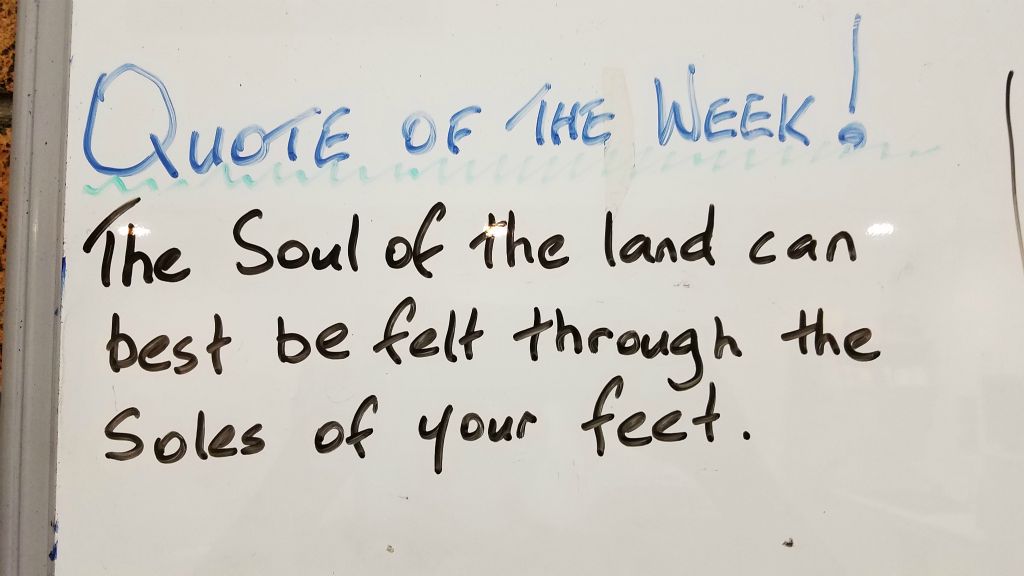 QUOTE OF THE WEEK!
The Soul of the land can
best be felt through the
Soles of your feet.